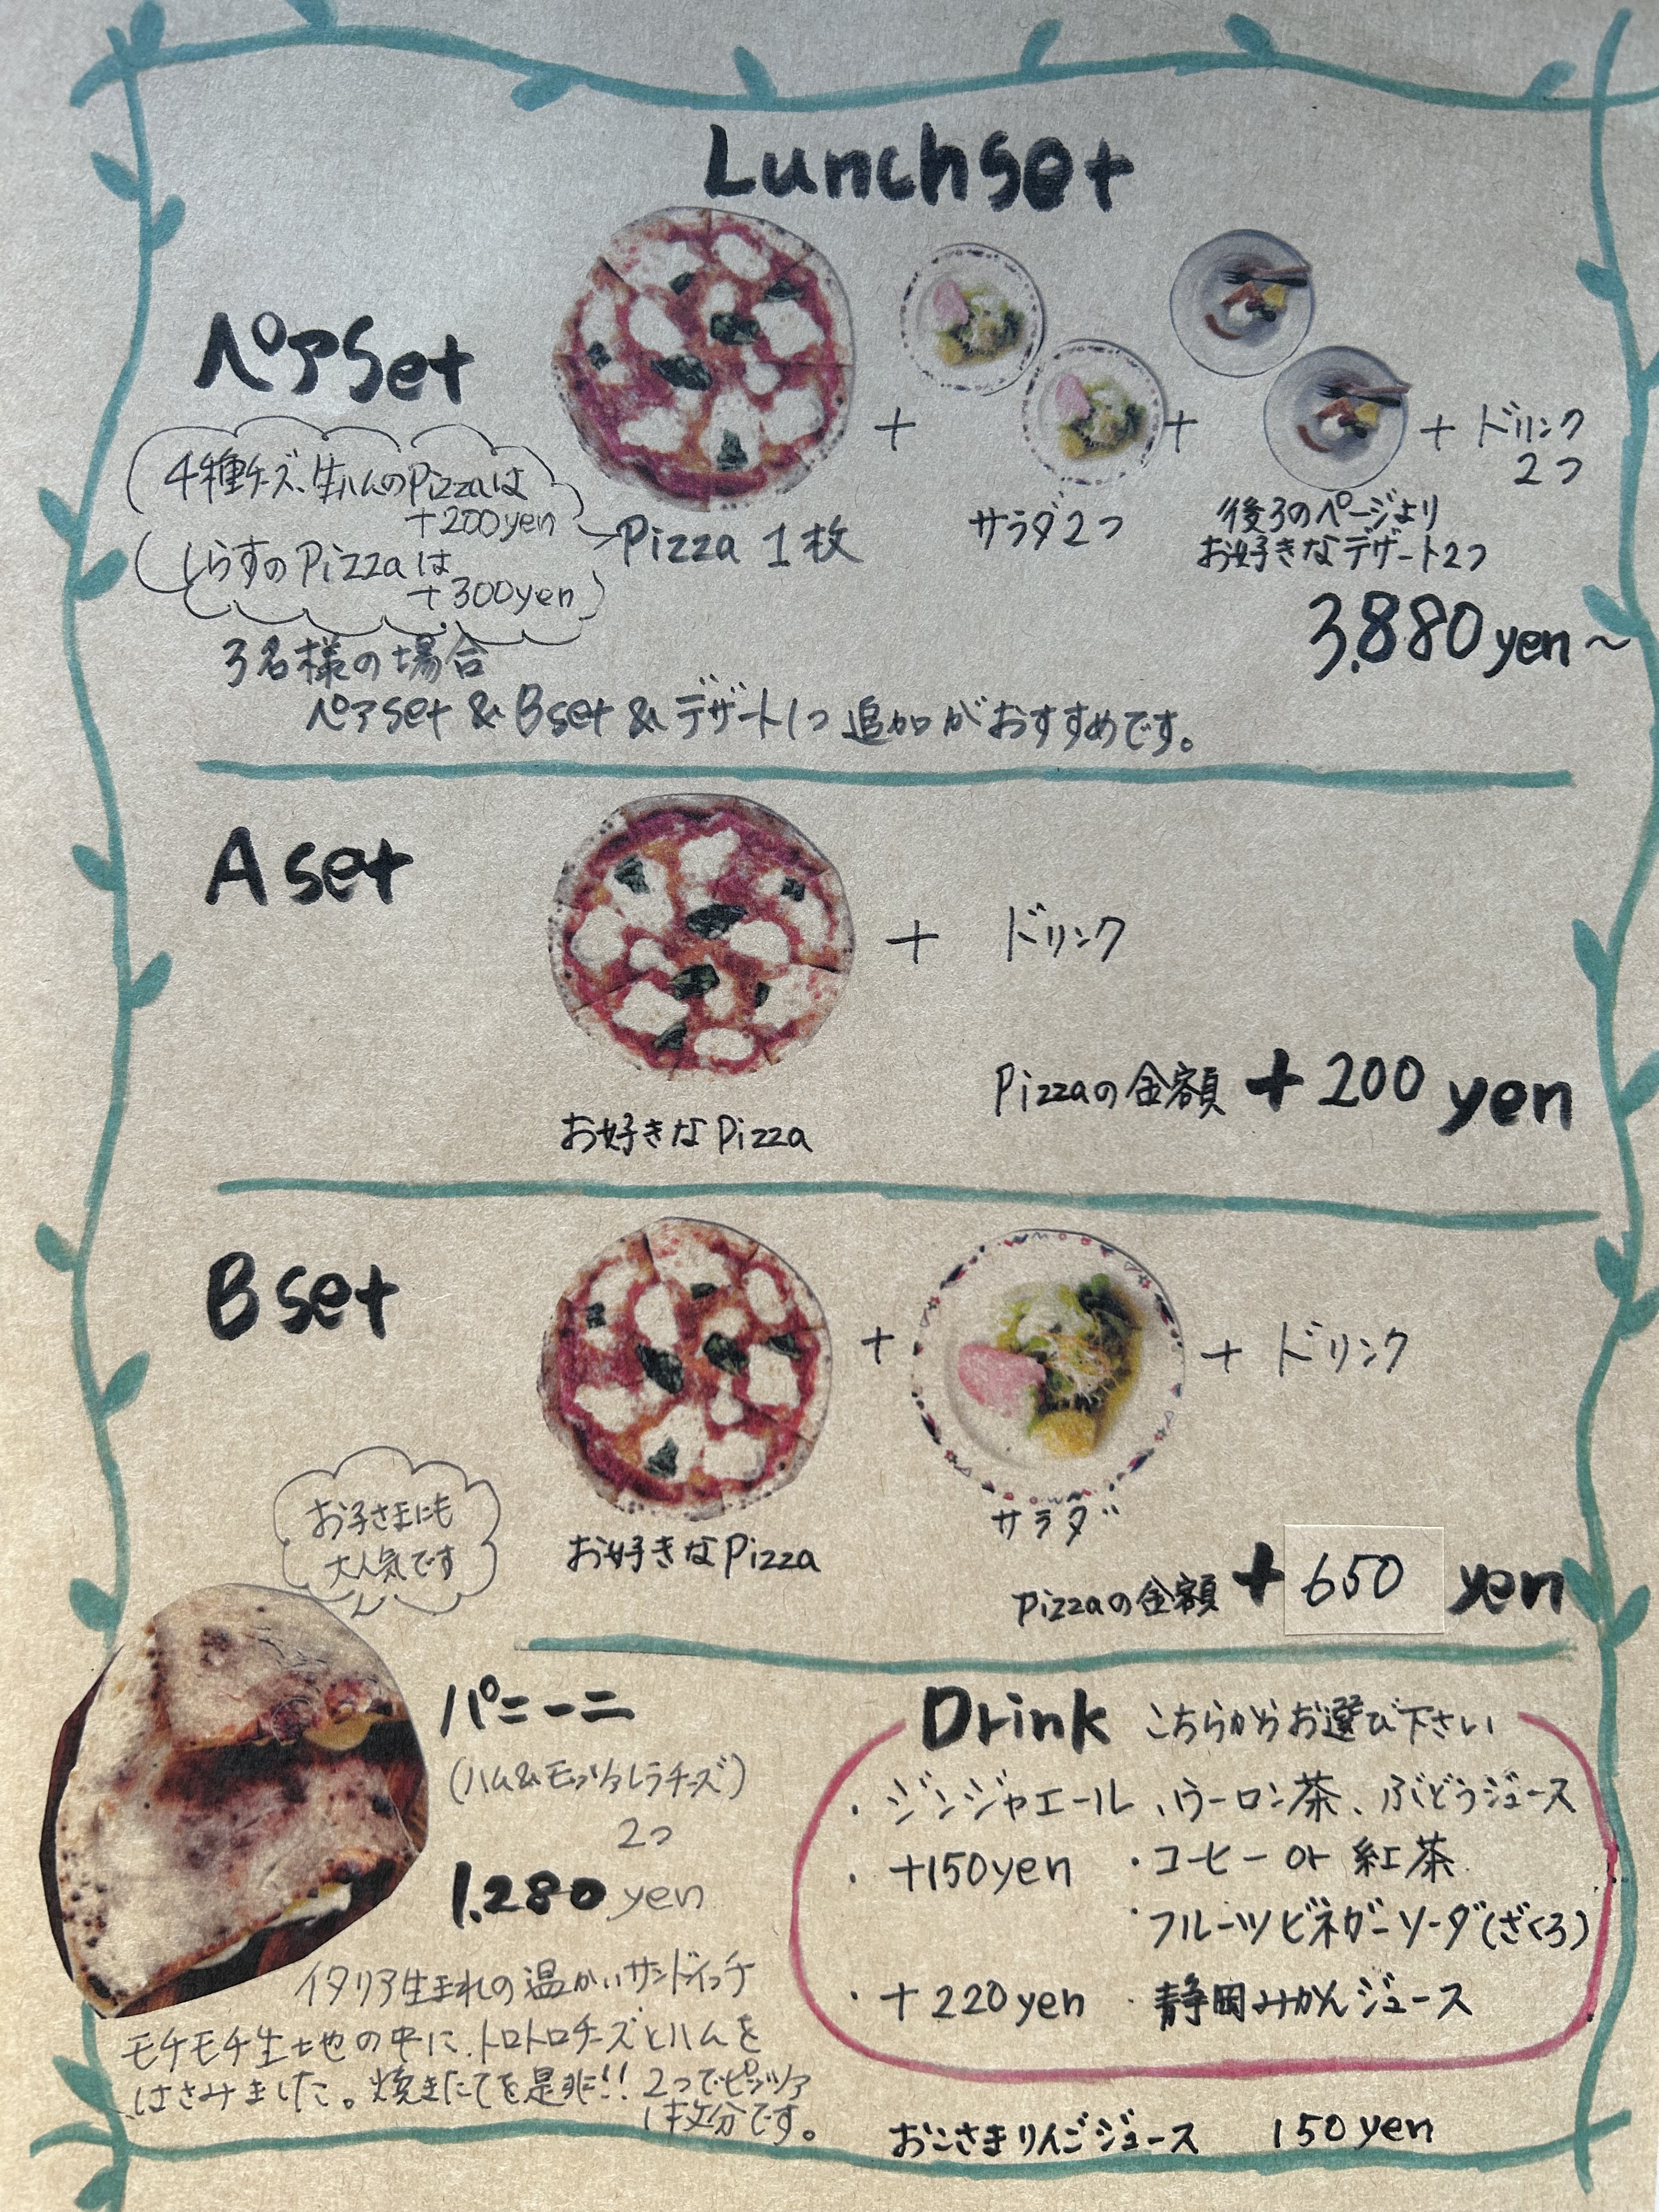 Lunchset
ペアset
+
+
+ ドリンク
2つ
4種チーズ、生ハムのPizzaは
+200yen
しらすのPizzaは
+300yen
Pizza 1枚
サラダ2つ
後ろのページより
お好きなデザート2つ
3,880yen~
3名様の場合
ペアset & Bset & デザート1つ追加がおすすめです。
A set
+ ドリンク
お好きなPizza
Pizzaの金額 +200 yen
B set
+
+ ドリンク
サラダ
お好きなPizza
Pizzaの金額 +650 yen
お子さまにも
大人気です
パニーニ
(ハム&モッツァレラチーズ)
2つ
1.280 yen
イタリア生まれの温かいサンドイッチ
モチモチ生地の中に、トロトロチーズとハムを
はさみました。焼きたてを是非!! 2つでピッツァ
1枚分です。
Drink こちらからお選び下さい
・ジンジャエール、ウーロン茶、ぶどうジュース
・+150yen ・コーヒー or 紅茶
・フルーツビネガーソーダ(ざくろ)
・+220yen ・静岡みかんジュース
おこさまりんごジュース 150yen